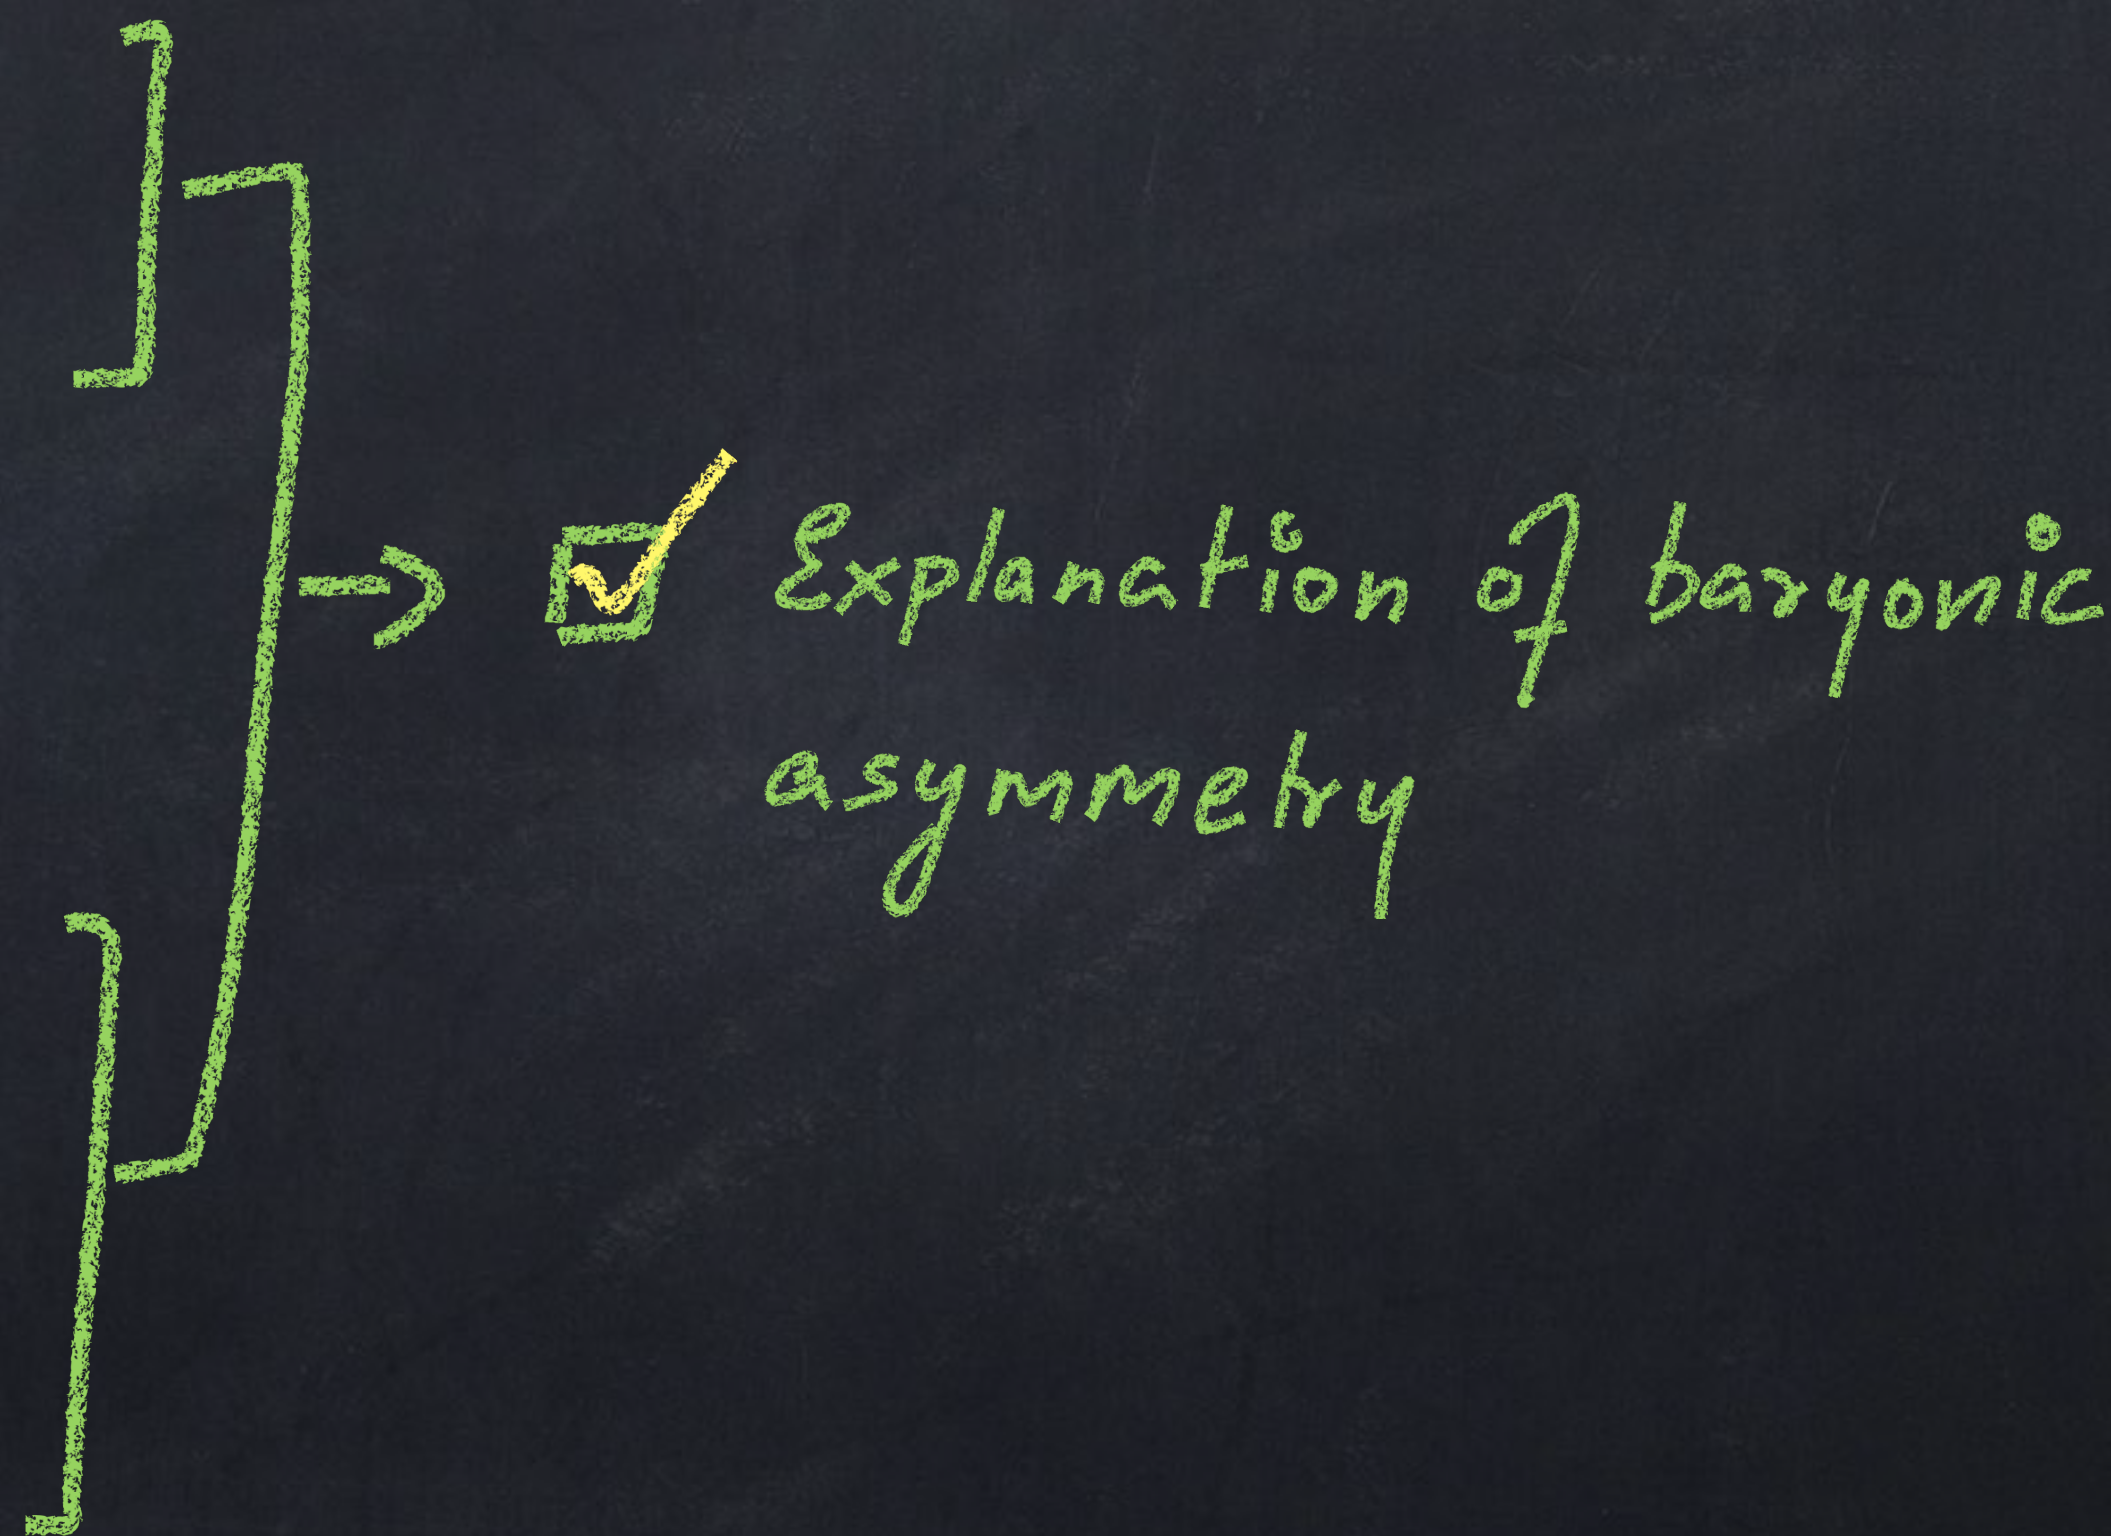 → ☑ Explanation of baryonic
asymmetry